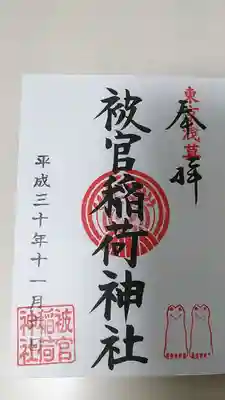 東京浅草
奉拝
被官稲荷神社
平成三十年十一月
被官
稲荷
神社